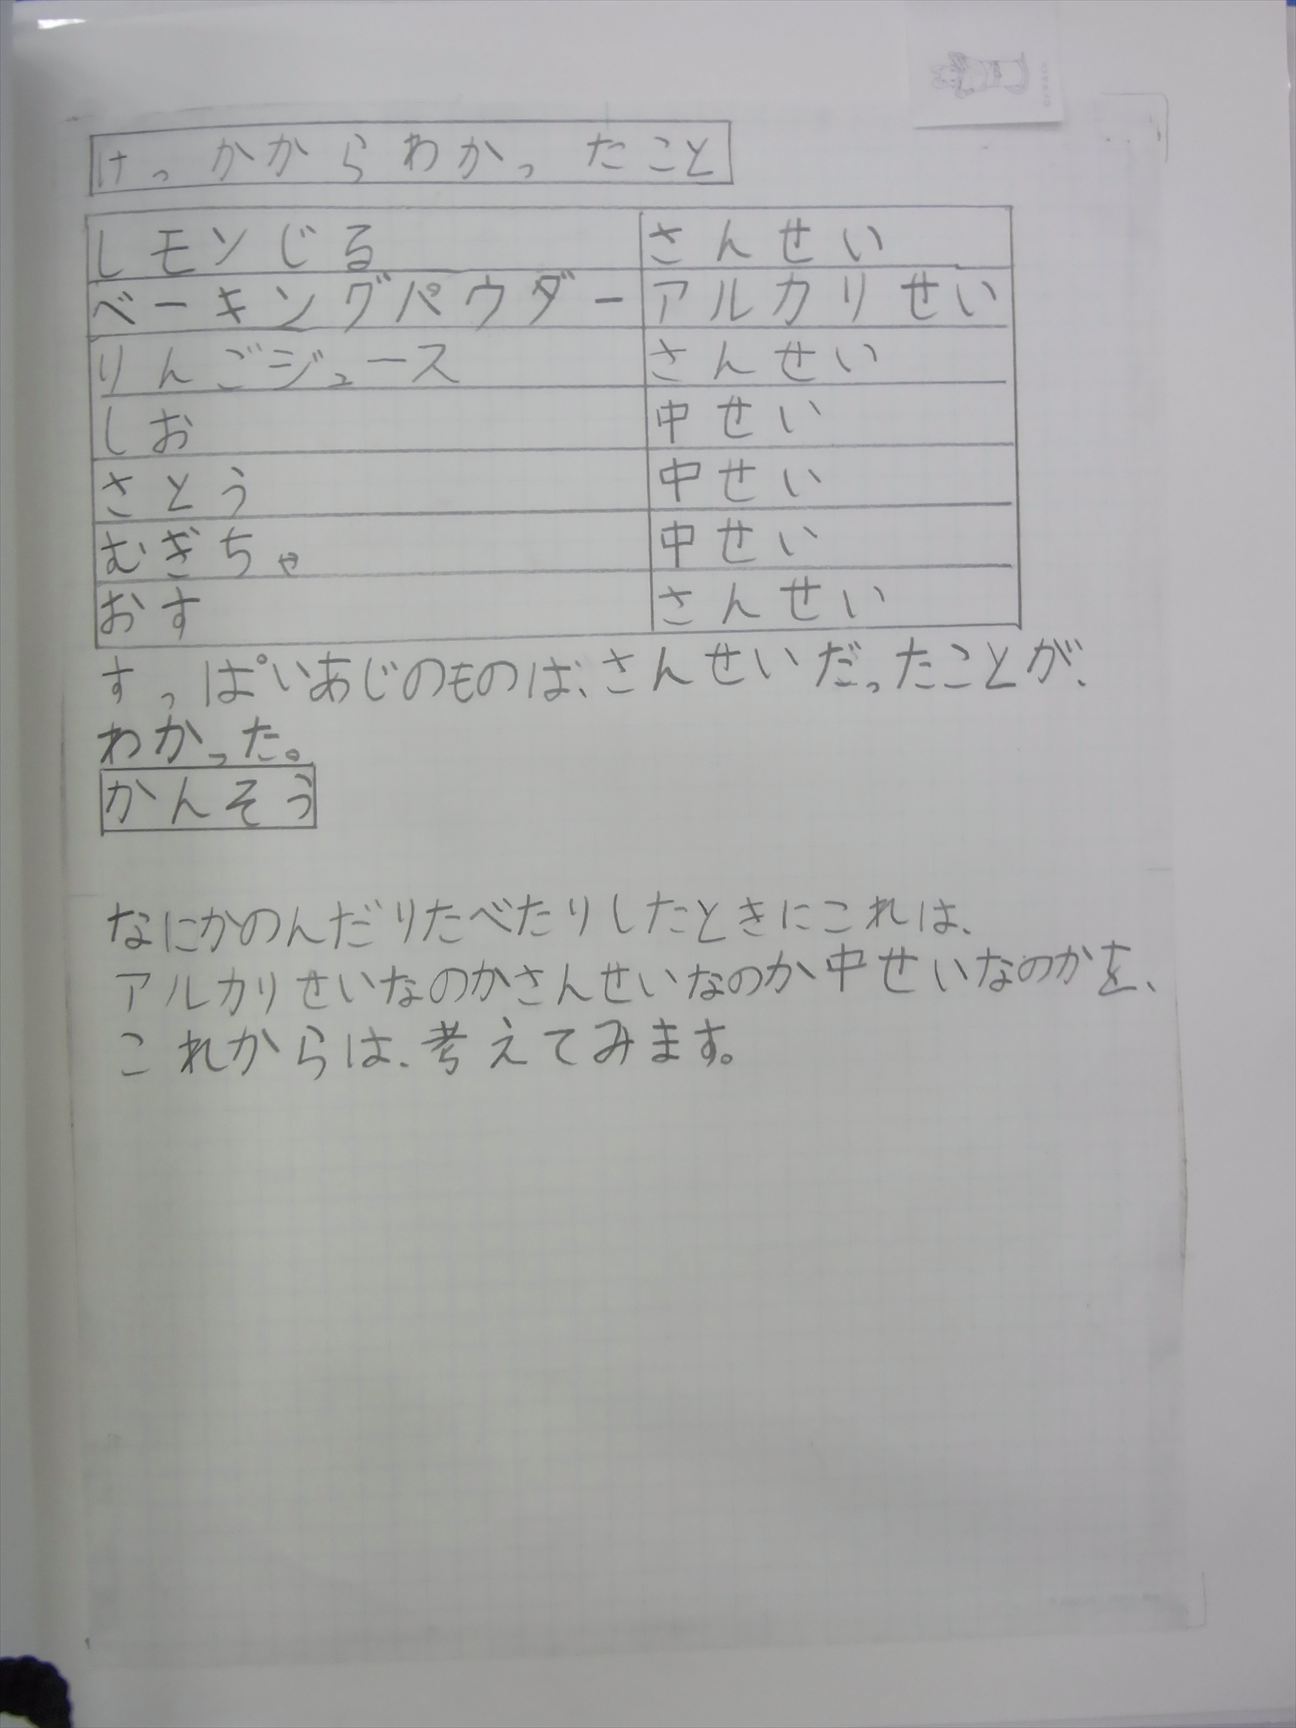 けっかからわかったこと
レモンじる さんせい
ベーキングパウダー アルカリせい
りんごジュース さんせい
しお 中せい
さとう 中せい
むぎちゃ 中せい
おす さんせい
すっぱいあじのものは、さんせいだったことが、
わかった。
かんそう
なにかのんだりたべたりしたときにこれは、
アルカリせいなのかさんせいなのか中せいなのかを、
これからは、考えてみます。